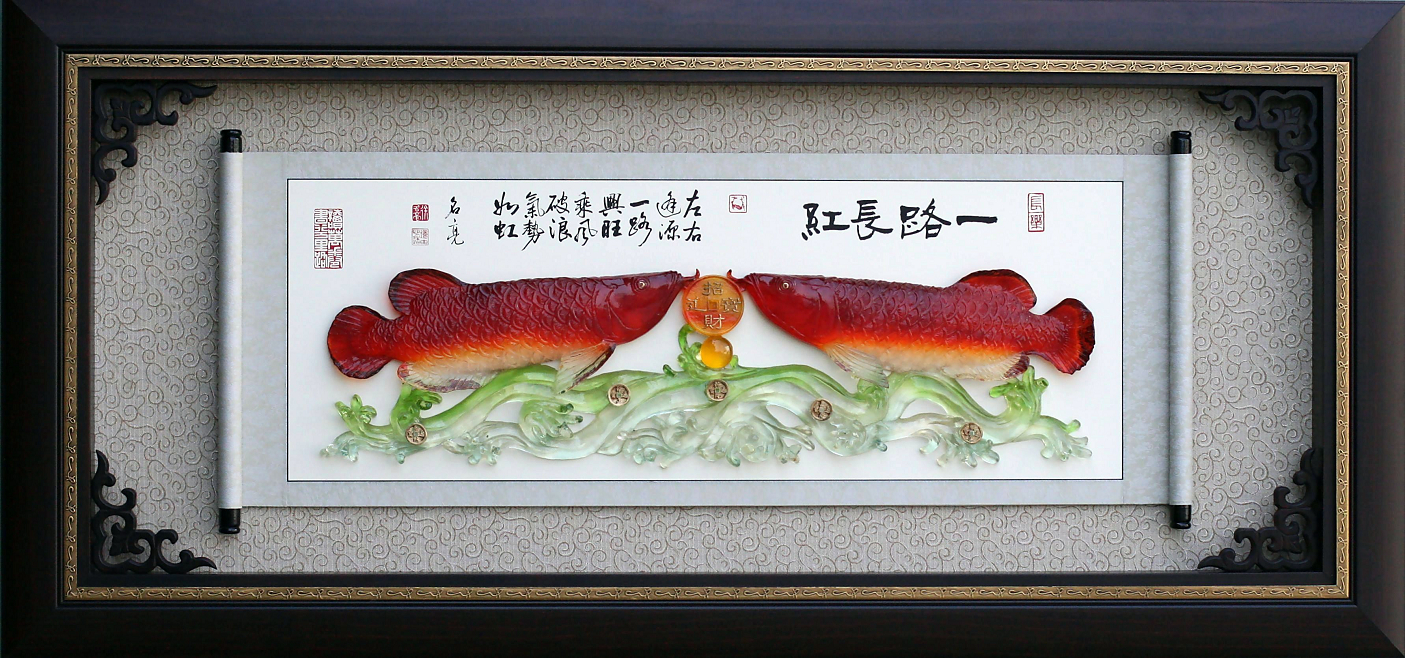 一路長紅
左右
逢源
一路
興旺
乘風
破浪
氣勢
如虹
名亮
長樂
招財進寶